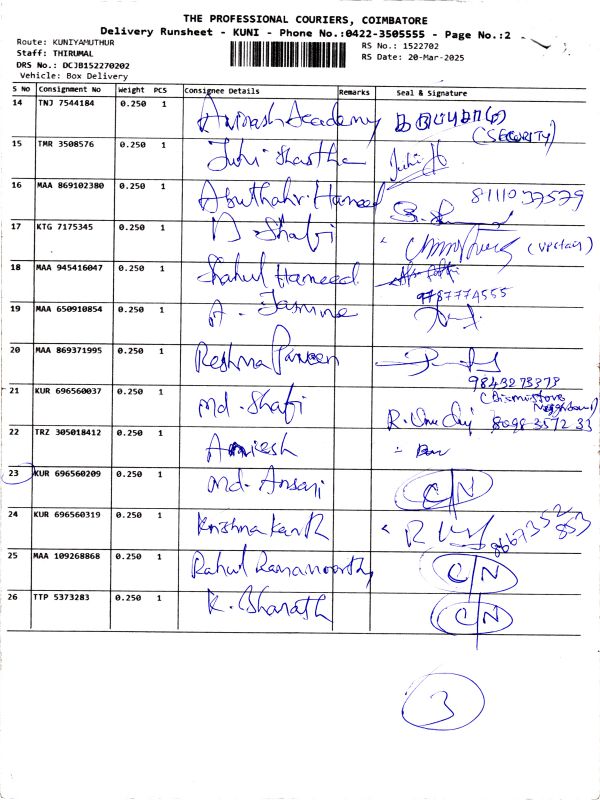 THE PROFESSIONAL COURIERS, COIMBATORE
Delivery Runsheet - KUNI - Phone No.:0422-3505555 - Page No.:2
Route: KUNIYAMUTHUR
Staff: THIRUMAL
DRS No.: DCJB152270202
Vehicle: Box Delivery
RS No.: 1522702
RS Date: 20-Mar-2025
S No Consignment No Weight PCS Consignee Details Remarks Seal & Signature
14 TNJ 7544184 0.250 1 Avinash Academy
(SECURITY)
15 TMR 3508576 0.250 1 Juhi Shastha Juhi
16 MAA 869102380 0.250 1 Abuthahir Hameed 8111037579
17 KTG 7175345 0.250 1 N. Shafi
18 MAA 945416047 0.250 1 Shahul Hameed
9787774555
19 MAA 650910854 0.250 1 A. Jasmine
20 MAA 869371995 0.250 1 Reshma Parveen
9843273373
21 KUR 696560037 0.250 1 Md. Shafi
22 TRZ 305018412 0.250 1
23 KUR 696560209 0.250 1 Md. Ansari C/N
24 KUR 696560319 0.250 1 Krishnakanth 8667352853
25 MAA 109268868 0.250 1 Rahul Ramamoorthy C/N
26 TTP 5373283 0.250 1 K. Bharath C/N
3